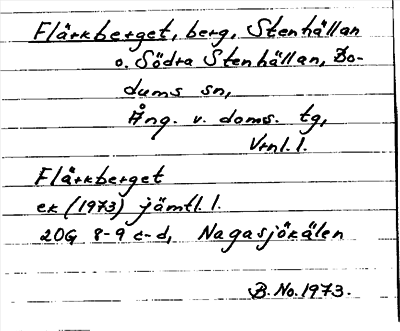 Flärkberget, berg, Stenhällan
o. Södra Stenhällan, Bo-
dums sn,
Ång. v. doms. tg,
Vrnl. l.
Flärkberget
ek (1973) jämtl. l.
20G 8-9 c-d, Nagasjökälen
B. No. 1973.